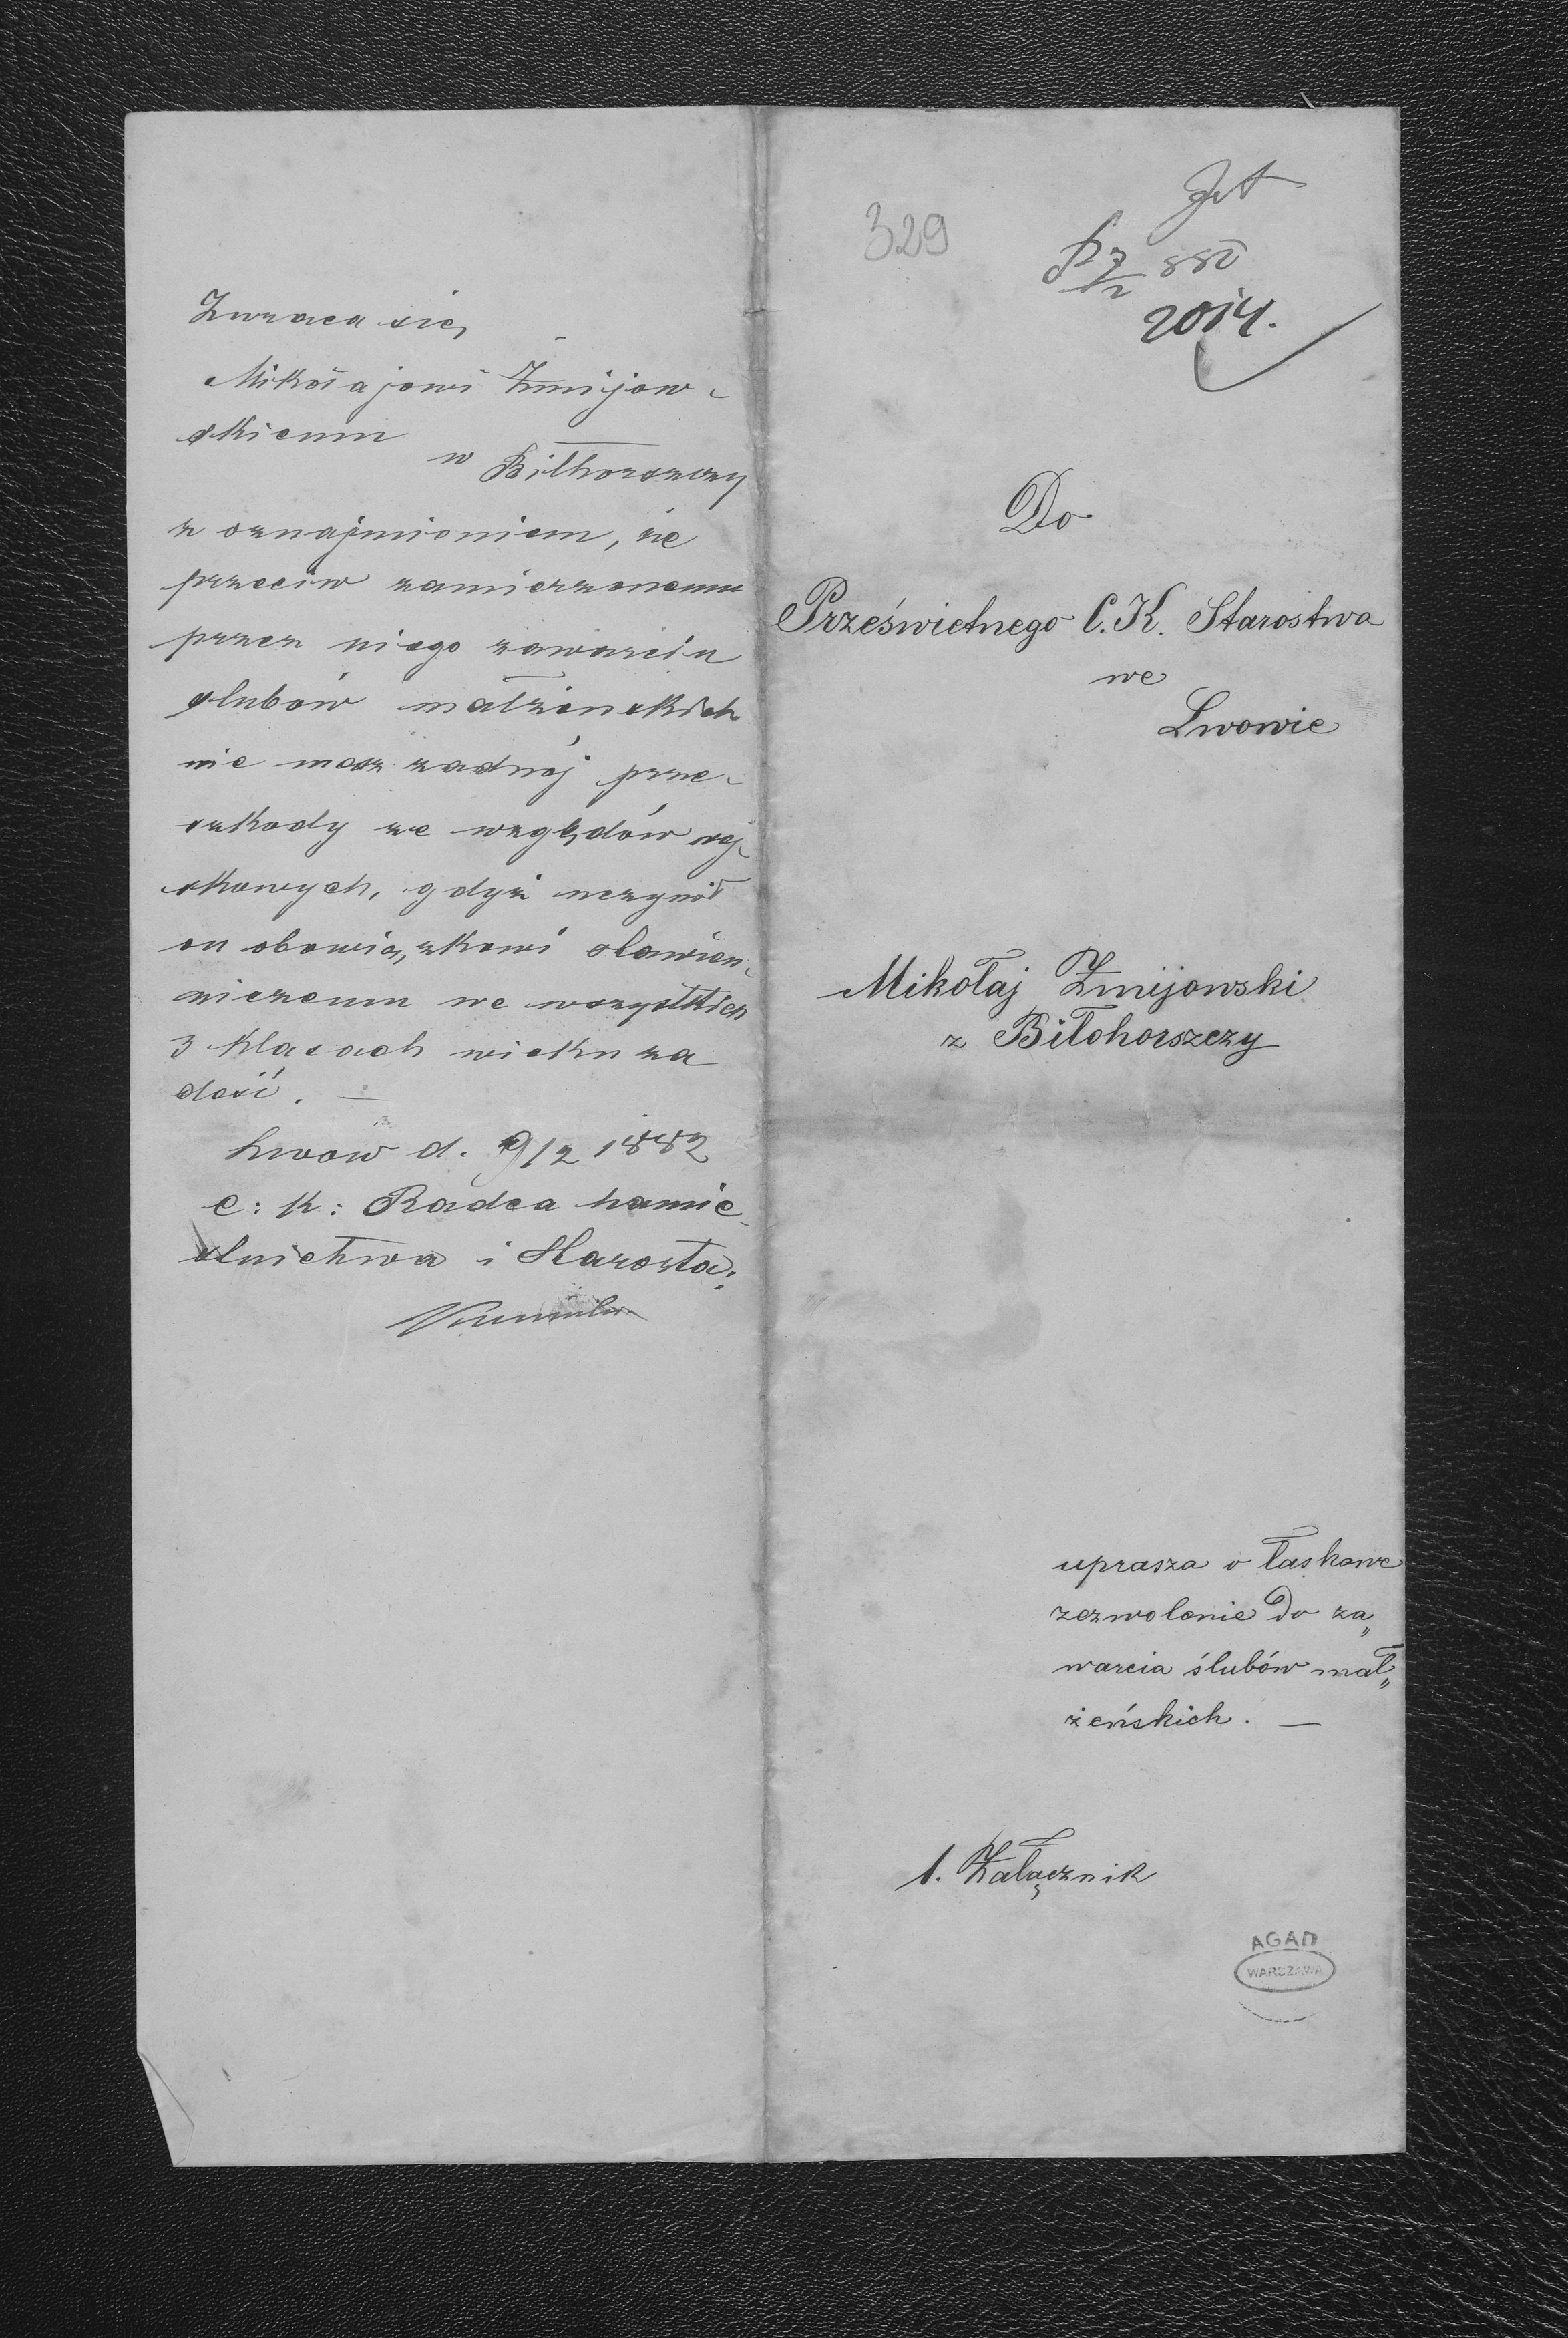 Zwraca się
Mikołajowi Zmijow-
skiemu
w Biłhorszczy
z oznajmieniem, że
przeciw zamierzonemu
przez niego zawarciu
ślubów małżeńskich
nie masz żadnéj prze-
szkody ze względów woj-
skowych, gdyż uczynił
on obowiązkowi stawien-
niczemu we wszystkich
3 klasach wieku za
dość. —
Lwow d. 9/2 1882
c: k: Radca namie-
stnictwa i Starosta:
329
2014.
Do
Prześwietnego C. K. Starostwa
we
Lwowie
Mikołaj Zmijowski
z Biłohorszczy
uprasza o łaskawe
zezwolenie do za„
warcia ślubów mał„
żeńskich. —
1. Załącznik
AGAD
WARSZAWA